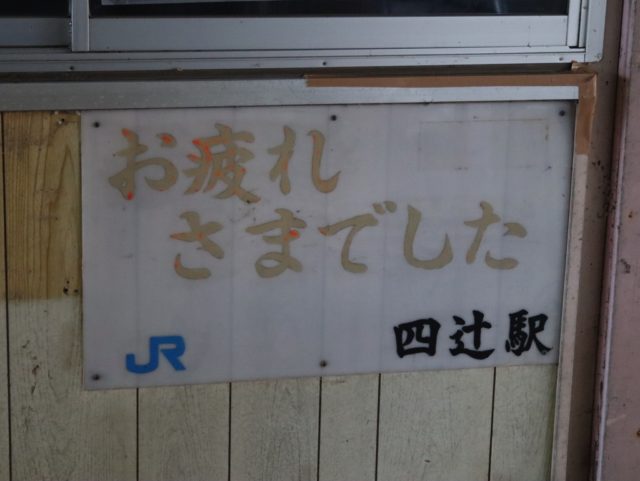 お疲れ
さまでした
JR 四辻駅